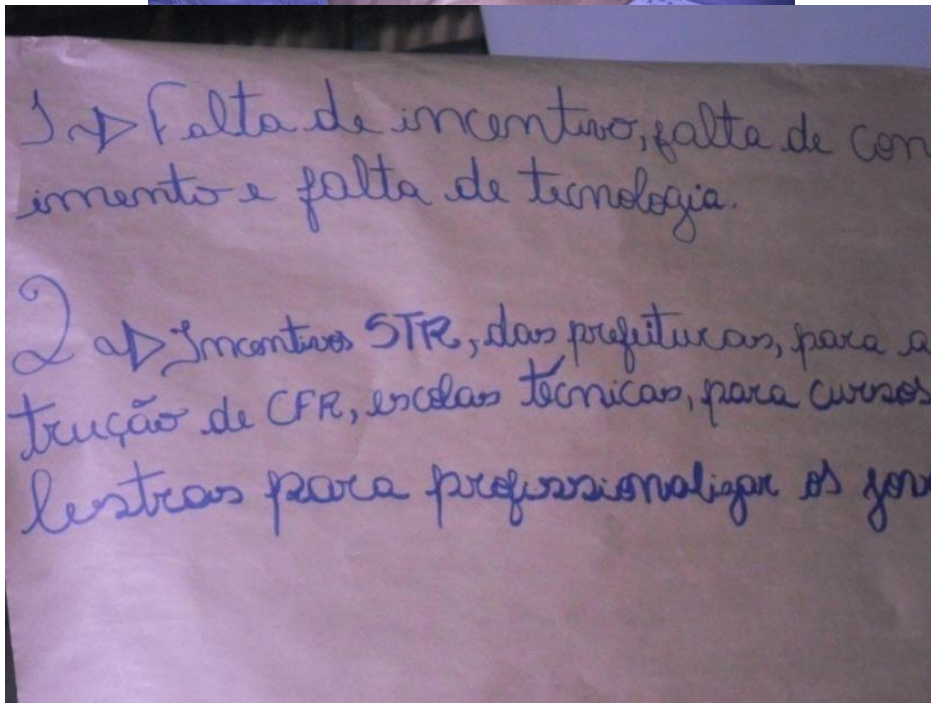 1 → Falta de incentivo, falta de con
imento e falta de tecnologia.
2 → Incentivos STR, das prefeituras, para a
trução de CFR, escolas técnicas, para cursos
lestras para profissionalizar os jov